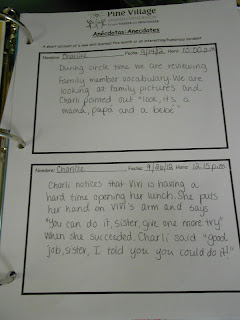 Pine Village
Anécdotas/Anecdotes
Nombre: Charlize Fecha: 9/24/12 Hora: 10:00 a.m
During circle time we are reviewing
family member vocabulary. We are
looking at family pictures and
Charli pointed out "look, it's a
mamá, papá and a bebé."
Nombre: Charlize Fecha: 9/26/12 Hora: 12:15 p.m
Charli notices that Vivi is having a
hard time opening her lunch. She puts
her hand on Vivi's arm and says
"You can do it, sister, give one more try"
When she succeeded, Charli said "good
job, sister, I told you you could do it!"